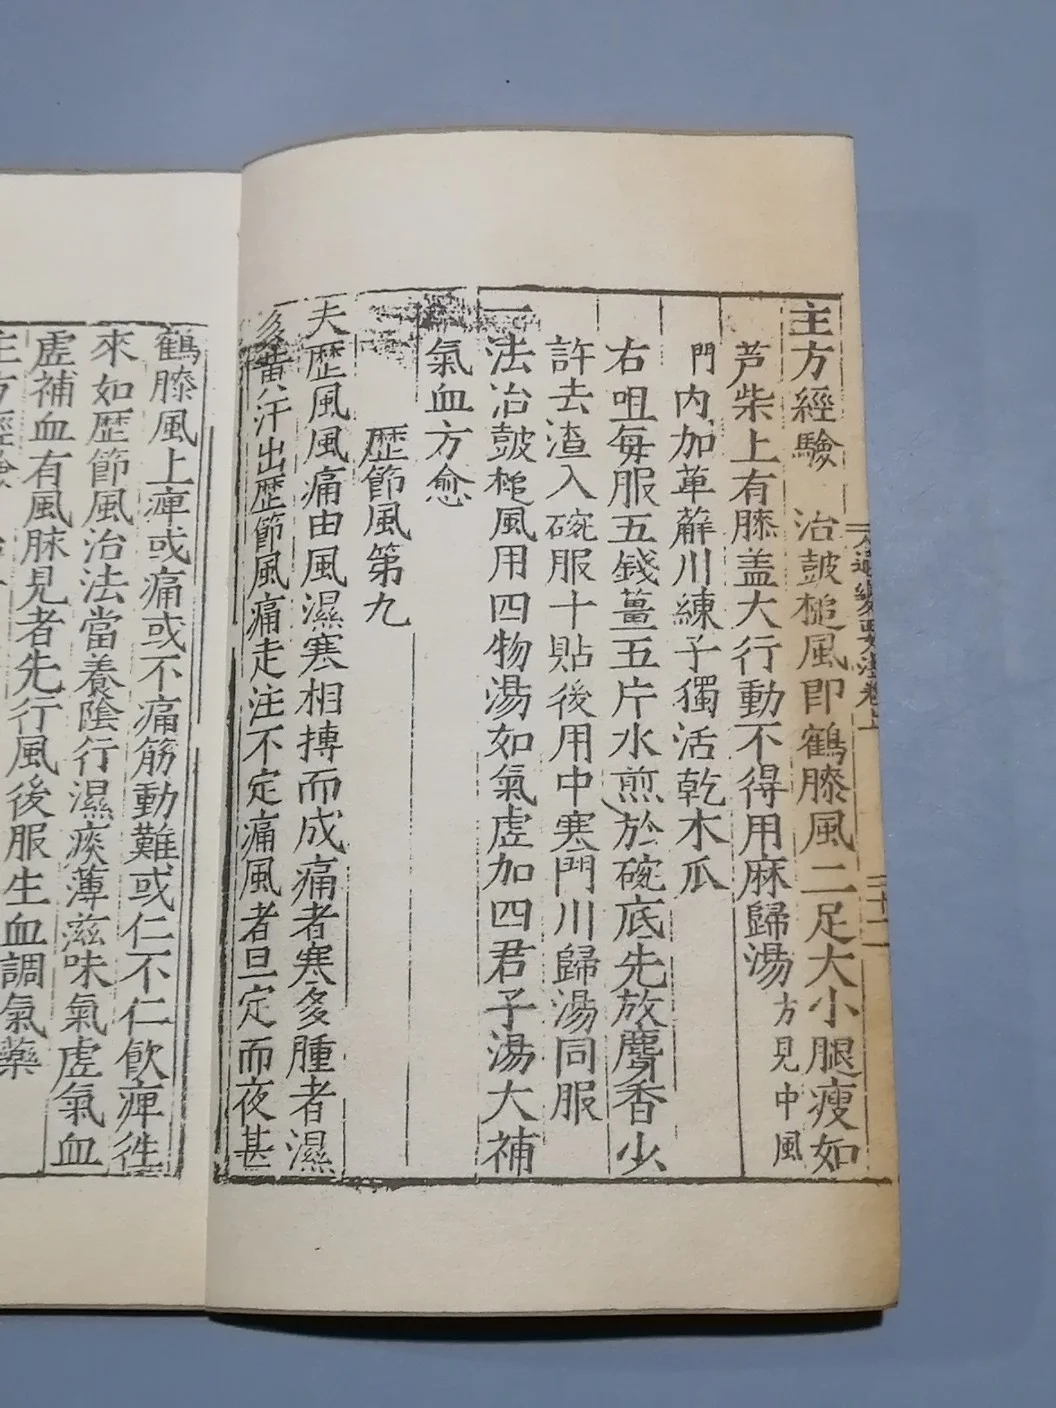 主方經驗　治皷槌風即鶴膝風二足大小腿瘦如
芦柴上有膝盖大行動不得用麻歸湯方見中風
門内加萆薢川練子獨活乾木瓜
右咀每服五錢薑五片水煎於碗底先放麝香少
許去渣入碗服十貼後用中寒門川歸湯同服
一法治皷槌風用四物湯如氣虛加四君子湯大補
氣血方愈
歷節風第九
夫歷風風痛由風濕寒相搏而成痛者寒多腫者濕
多黃汗出歷節風痛走注不定痛風者旦定而夜甚
鶴膝風上痺或痛或不痛筋動難或仁不仁飲痺徃
來如歷節風治法當養陰行濕痰薄滋味氣虛氣血
虛補血有風脉見者先行風後服生血調氣藥
主方經驗
卷上
十二